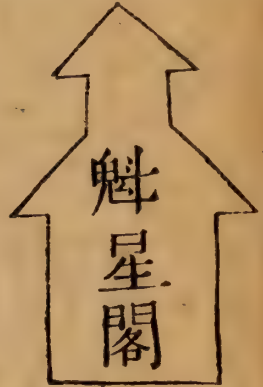 魁星閣